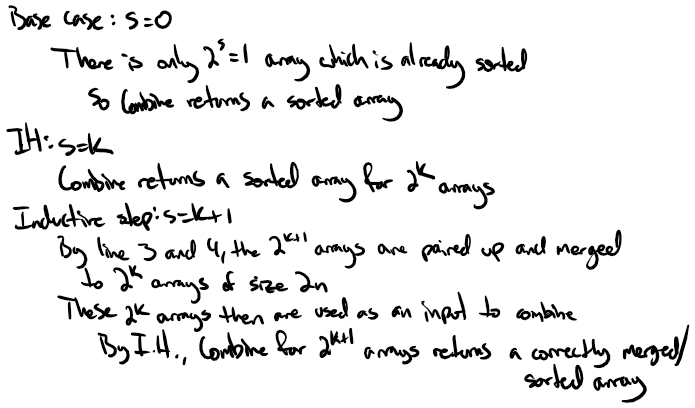 Base case: s=0
There is only 2^s=1 array which is already sorted
So Combine returns a sorted array
IH: s=k
Combine returns a sorted array for 2^k arrays
Inductive step: s=k+1
By line 3 and 4, the 2^{k+1} arrays are paired up and merged
to 2^k arrays of size 2n
These 2^k arrays then are used as an input to combine
By I.H., Combine for 2^{k+1} arrays returns a correctly merged/
sorted array